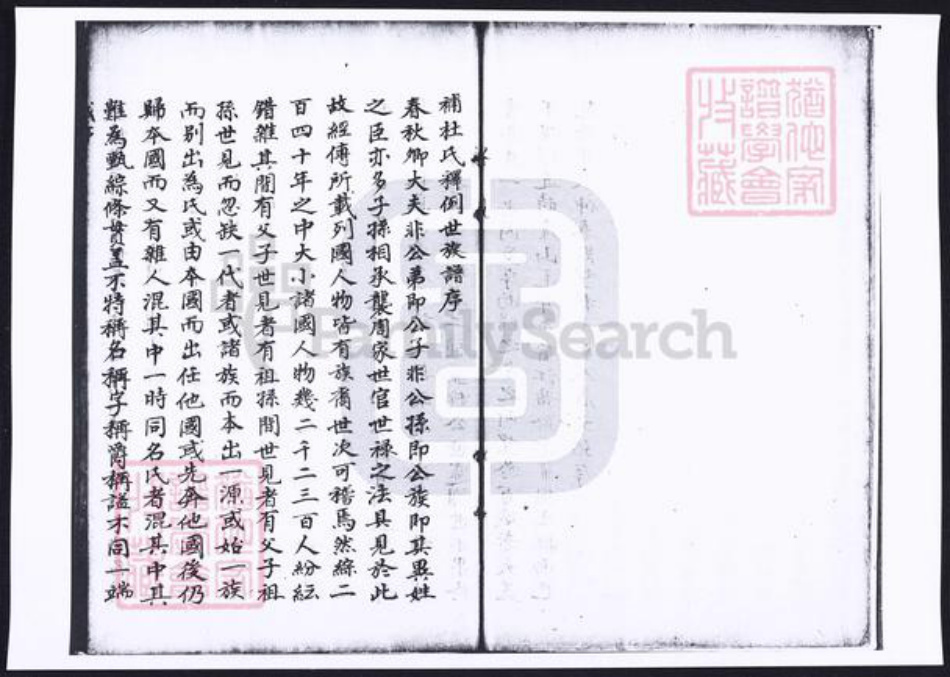 補杜氏釋例世族譜序
春秋卿大夫非公弟即公子非公孫即公族即其異姓
之臣亦多子孫相承襲周家世官世祿之法具見於此
故經傳所載列國人物皆有族屬世次可稽焉然綜二
百四十年之中大小諸國人物幾二千二三百人紛紜
錯雜其間有父子世見者有祖孫間世見者有父子祖
孫世見而忽缺一代者或諸族而本出一源或始一族
而別出為氏或由本國而出任他國或先奔他國後仍
歸本國而又有雜人混其中一時同名氏者混其中其
難為甄綜條貫豈不特稱名稱字稱爵稱謚不同一端
猶他家
譜學會
收藏
FamilySearch